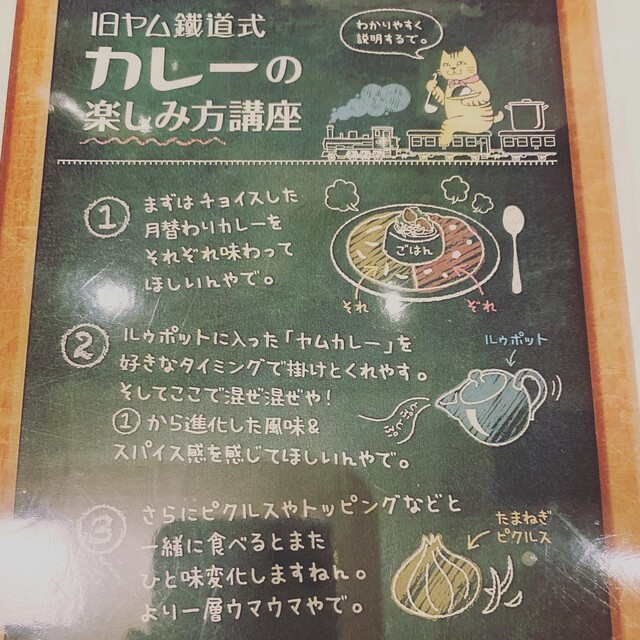 旧ヤム鐵道式
カレーの
楽しみ方講座
わかりやすく
説明するで。
① まずはチョイスした
月替わりカレーを
それぞれ味わって
ほしいんやで。
ごはん
それ
ぞれ
② ルゥポットに入った「ヤムカレー」を
好きなタイミングで掛けとくれやす。
そしてここで混ぜ混ぜや!
①から進化した風味&
スパイス感を感じてほしいんやで。
ルゥポット
とぷとぷ
③ さらにピクルスやトッピングなどと
一緒に食べるとまた
ひと味変化しますねん。
より一層ウマウマやで。
たまねぎ
ピクルス